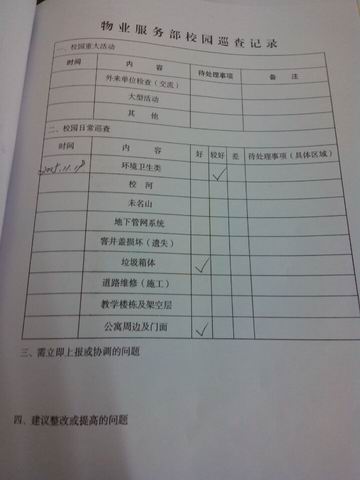 物业服务部校园巡查记录
一、校园重大活动
时间 内容 待处理事项 备注
外来单位检查(交流)
大型活动
其他
二、校园日常巡查
时间 内容 好 较好 差 待处理事项(具体区域)
环境卫生类 ✓
校河
未名山
地下管网系统
窨井盖损坏(遗失)
垃圾箱体 ✓
道路维修(施工)
教学楼栋及架空层
公寓周边及门面 ✓
三、需立即上报或协调的问题
四、建议整改或提高的问题